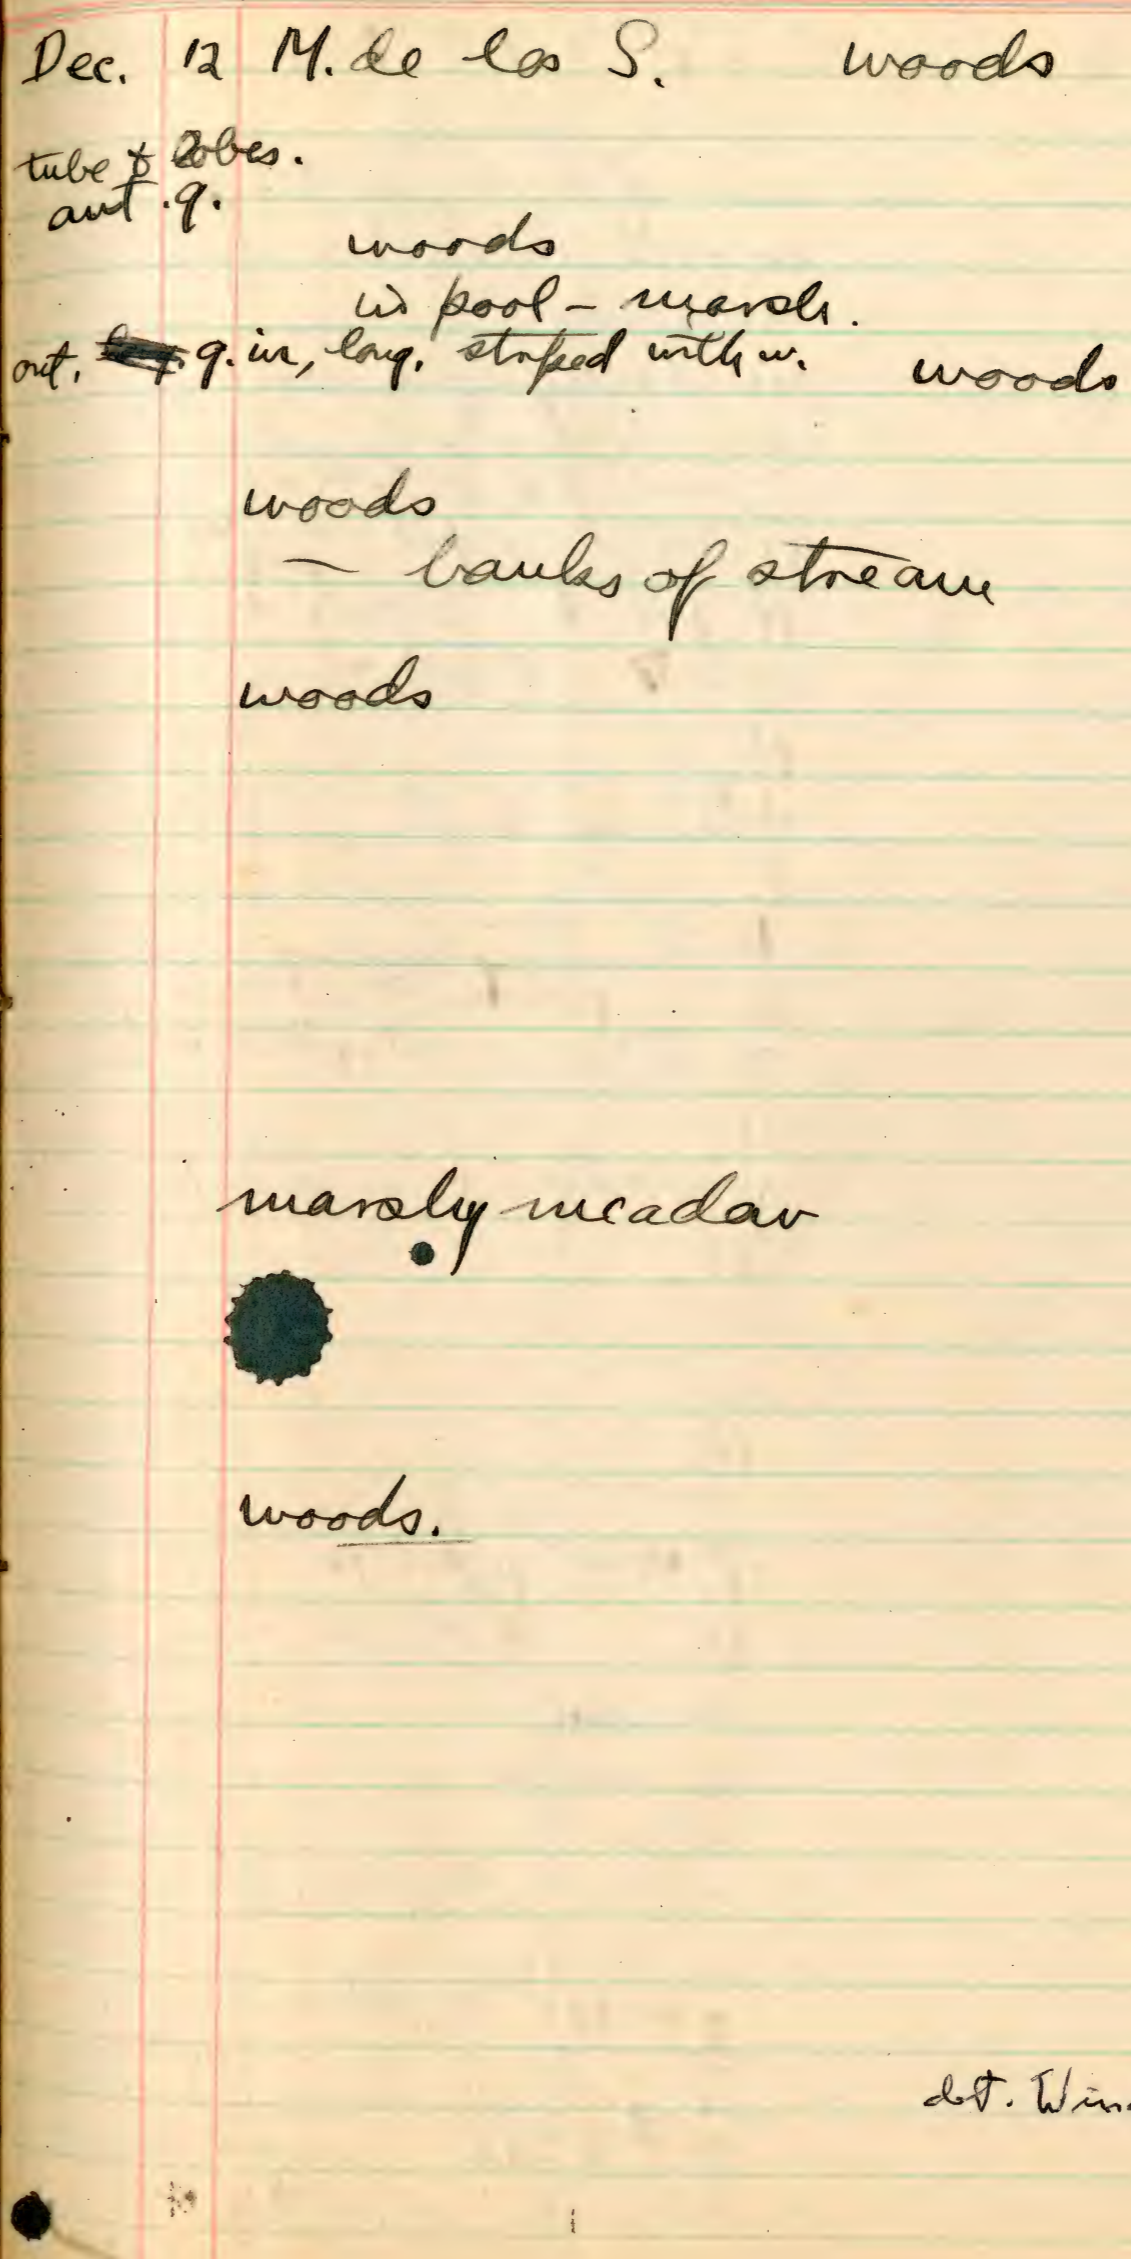 Dec. 12 M. de las S. woods
tube & lobes.
ant. g.
woods
in pool - marsh.
out. g. in, long. striped with w. woods
woods
- banks of stream
woods
marshy meadow
woods.
det. Win